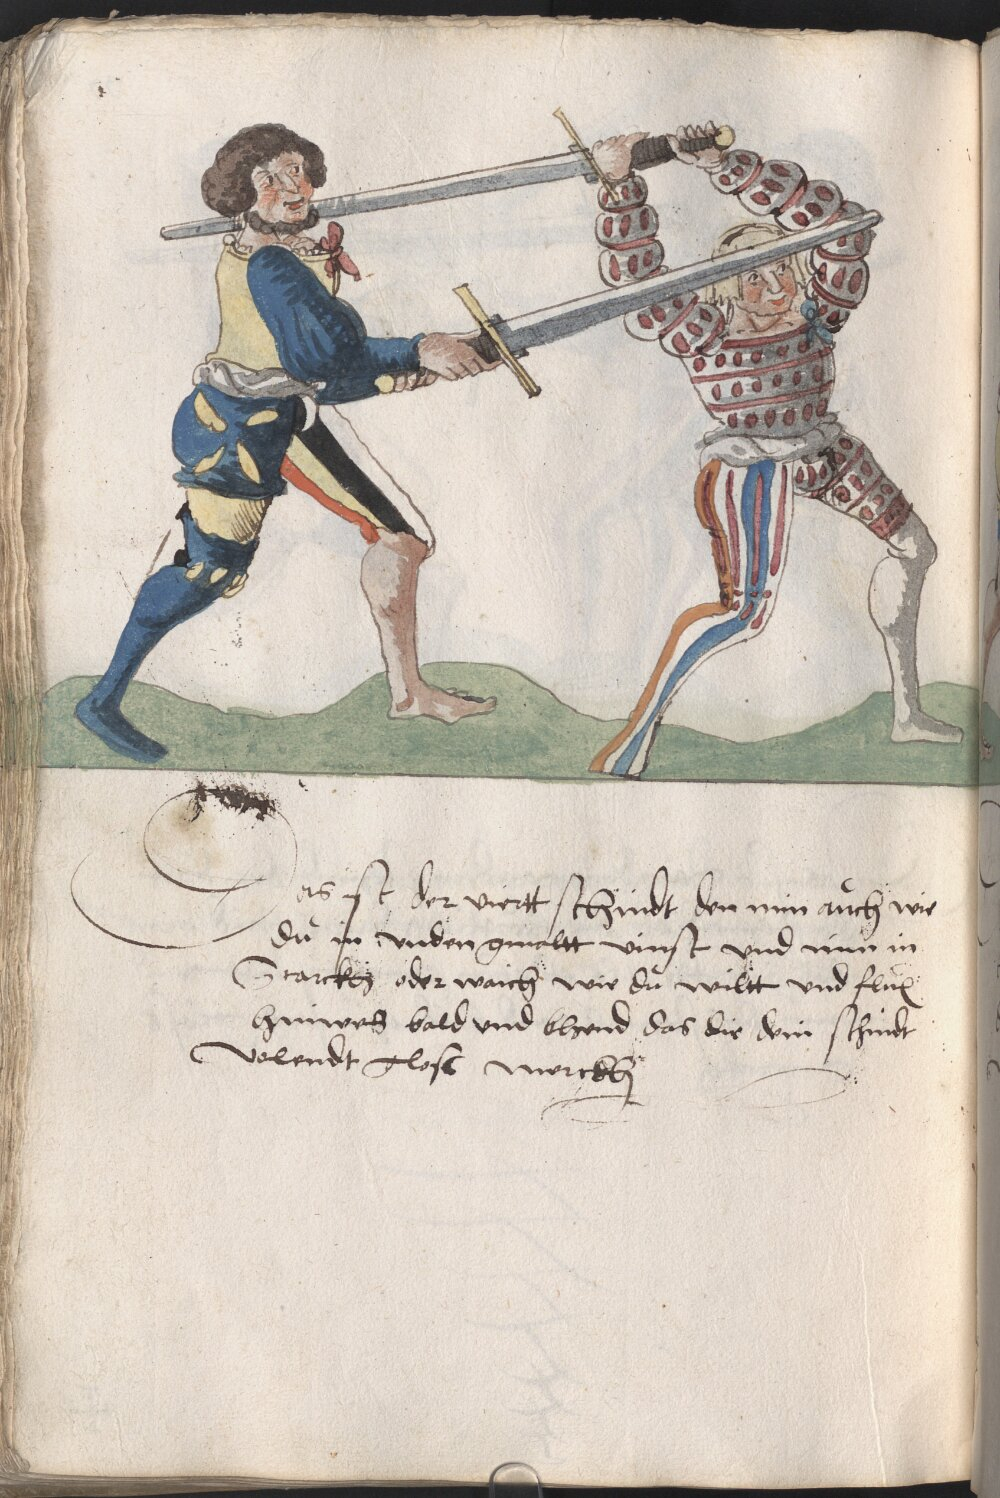 Das ist der viertt schnidt den nim auch wie
du in unden gmaltt vinst und nim in
Starckh oder waich wie du wiltt und flux
hinweg bald und bhend das die dein schnidt
Volendt glosc merckh